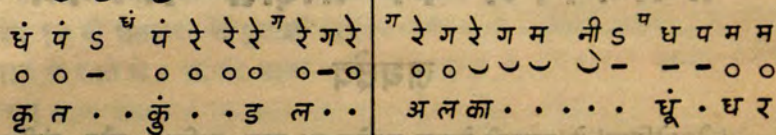 धं पं ऽ धं पं रे रे रे ग रे ग रे | ग रे ग रे ग म नी ऽ प ध प म म
० ० – ० ० ० ० ० – ० | ० ० ⏑ ⏑ ⏑ ⏑ – – – ० ०
कृ त · · कुं · · ड ल · · | अ ल का · · · · · घूं · घ र